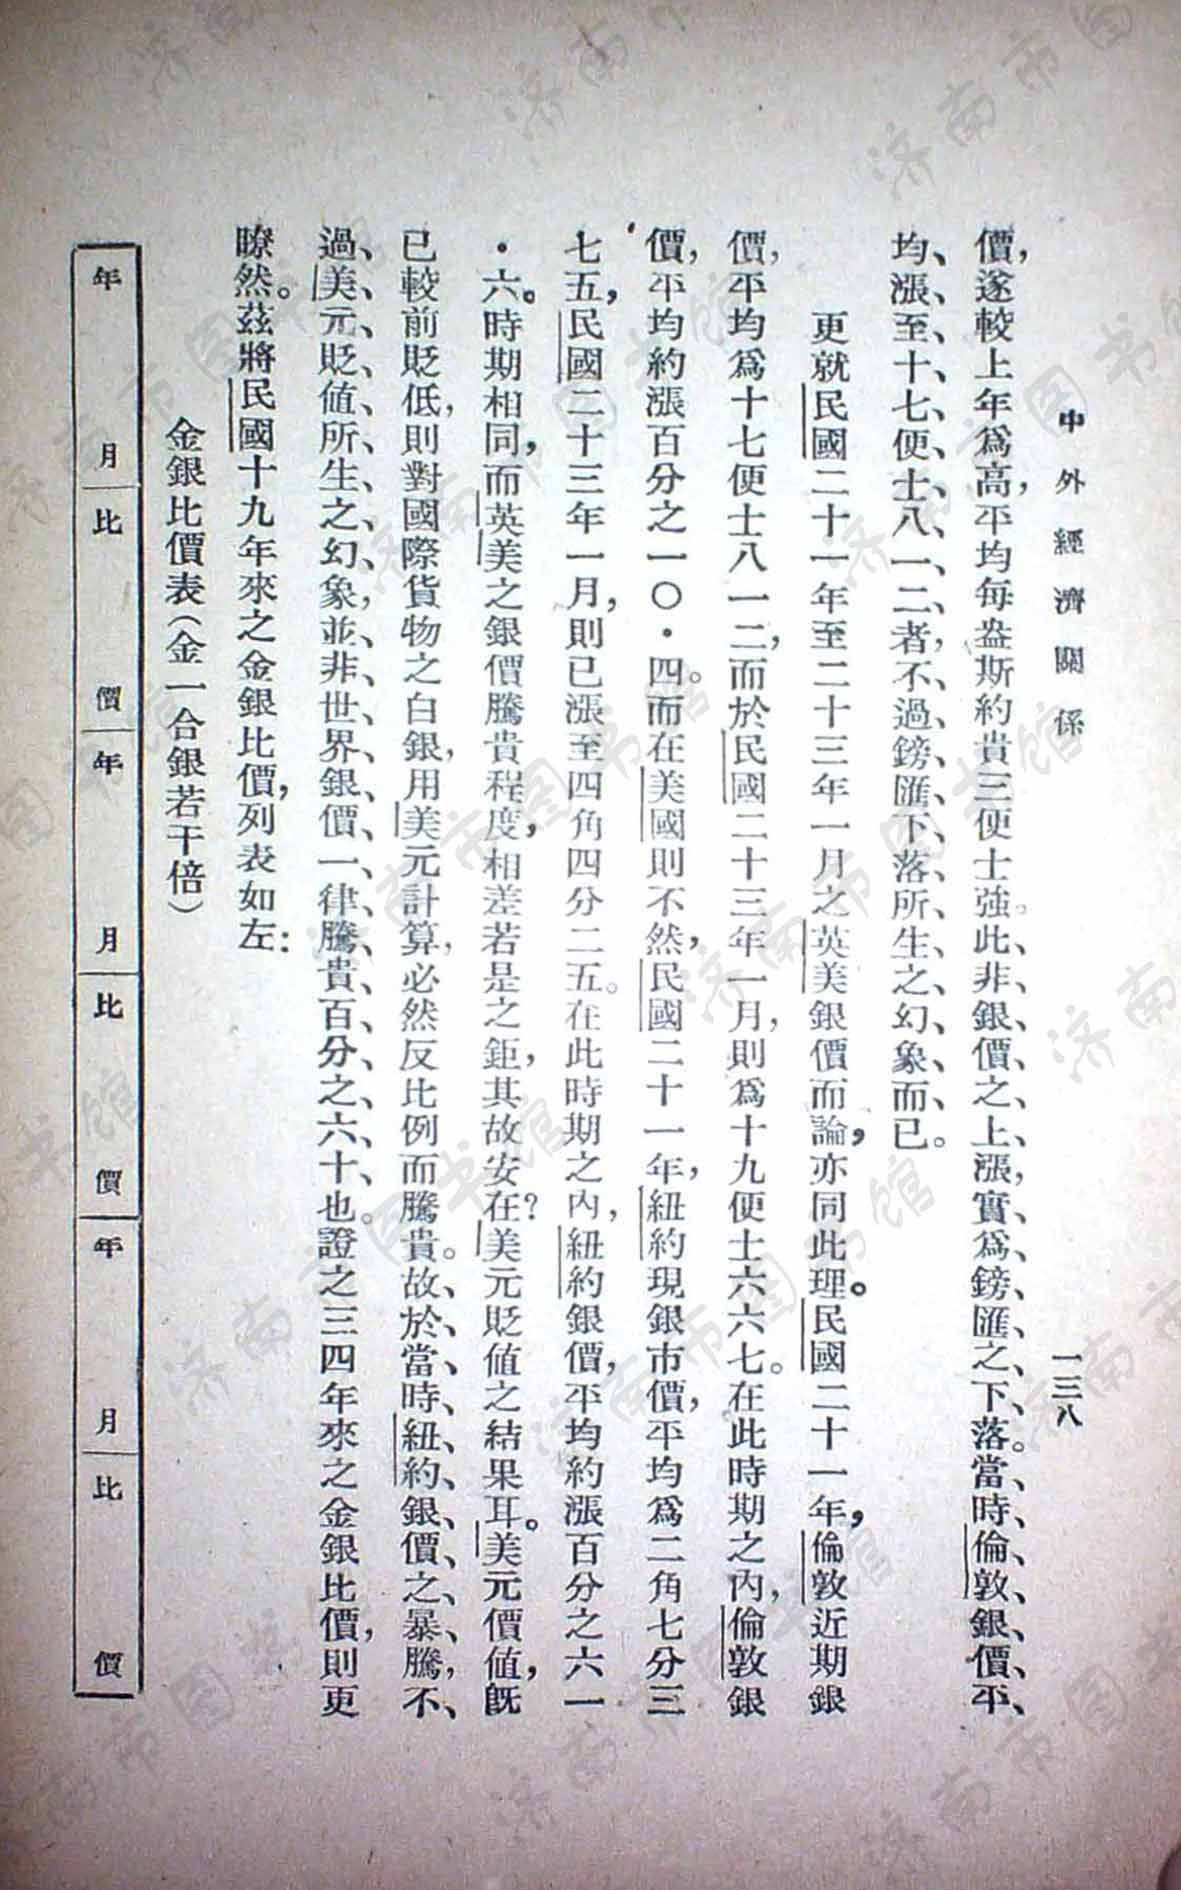 中外經濟關係
一三八
價，遂較上年爲高，平均每盎斯約貴三便士強。此非、銀、價、之、上、漲，實、爲、鎊、匯、之、下、落。當、時、倫、敦、銀、價、平、
均、漲、至、十、七、便、士、八、一、二、者，不、過、鎊、匯、下、落、所、生、之、幻、象、而、已。
更就民國二十一年至二十三年一月之英美銀價而論，亦同此理。民國二十一年，倫敦近期銀
價，平均爲十七便士八一二，而於民國二十三年一月，則爲十九便士六六七。在此時期之內，倫敦銀
價，平均約漲百分之一〇·四。而在美國則不然，民國二十一年，紐約現銀市價，平均爲二角七分三
七五，民國二十三年一月，則已漲至四角四分二五。在此時期之內，紐約銀價，平均約漲百分之六一
·六。時期相同，而英美之銀價騰貴程度，相差若是之鉅，其故安在？美元貶值之結果耳。美元價值，既
已較前貶低，則對國際貨物之白銀，用美元計算，必然反比例而騰貴。故、於、當、時、紐、約、銀、價、之、暴、騰，不、
過、美、元、貶、值、所、生、之、幻、象，並、非、世、界、銀、價、一、律、騰、貴、百、分、之、六、十、也。證之三四年來之金銀比價，則更
瞭然。茲將民國十九年來之金銀比價，列表如左：
金銀比價表（金一合銀若干倍）
年 月 比 價 年 月 比 價 年 月 比 價
济南市图书馆